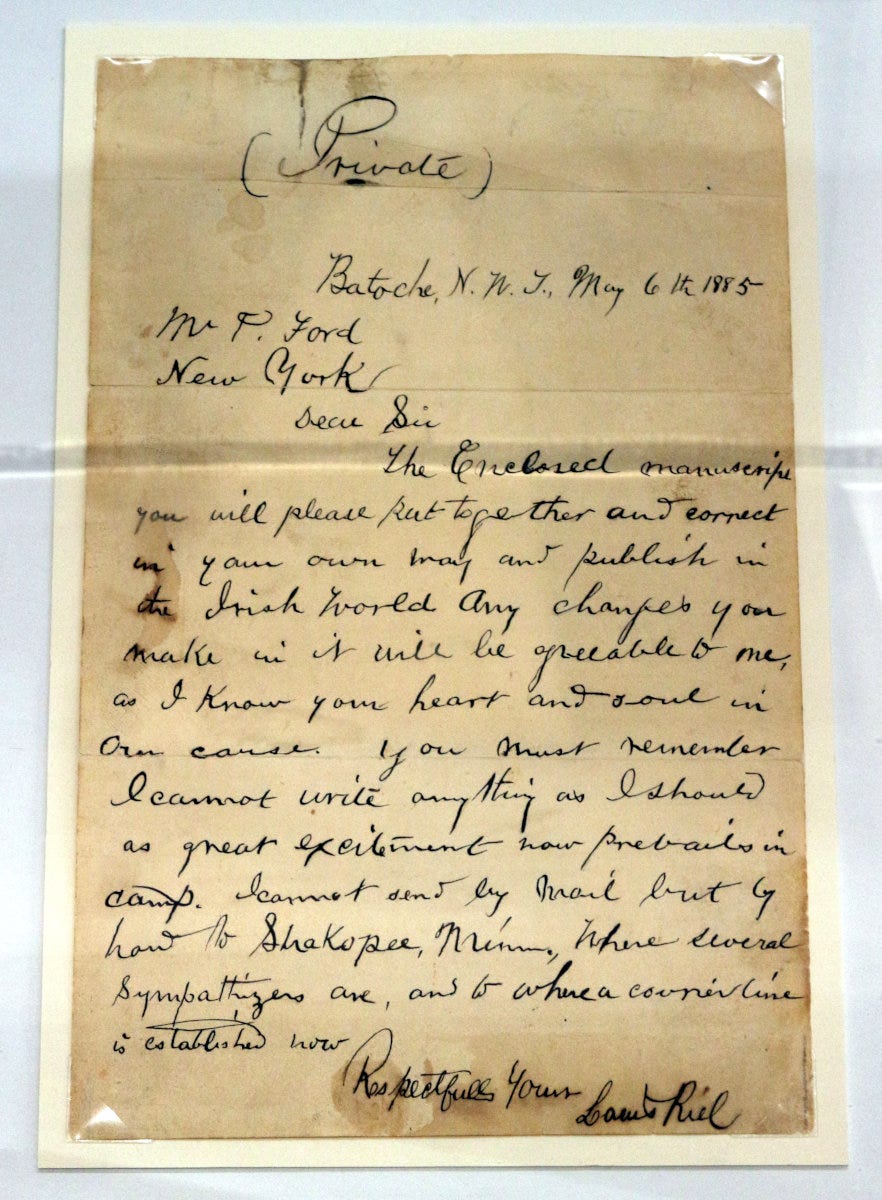 (Private)
Batoche, N. W. T., May 6th 1885
Mr P. Ford
New York
Dear Sir
The Enclosed manuscript
you will please put together and correct
in your own way and publish in
the Irish World Any changes you
make in it will be greeable to me,
as I know your heart and soul in
our cause. You must remember
I cannot write anything as I should
as great excitement now prevails in
camp. I cannot send by mail but by
hand to Shakopee, Minn., where several
sympathizers are, and to where a courier line
is established now
Respectfully Yours
Louis Riel